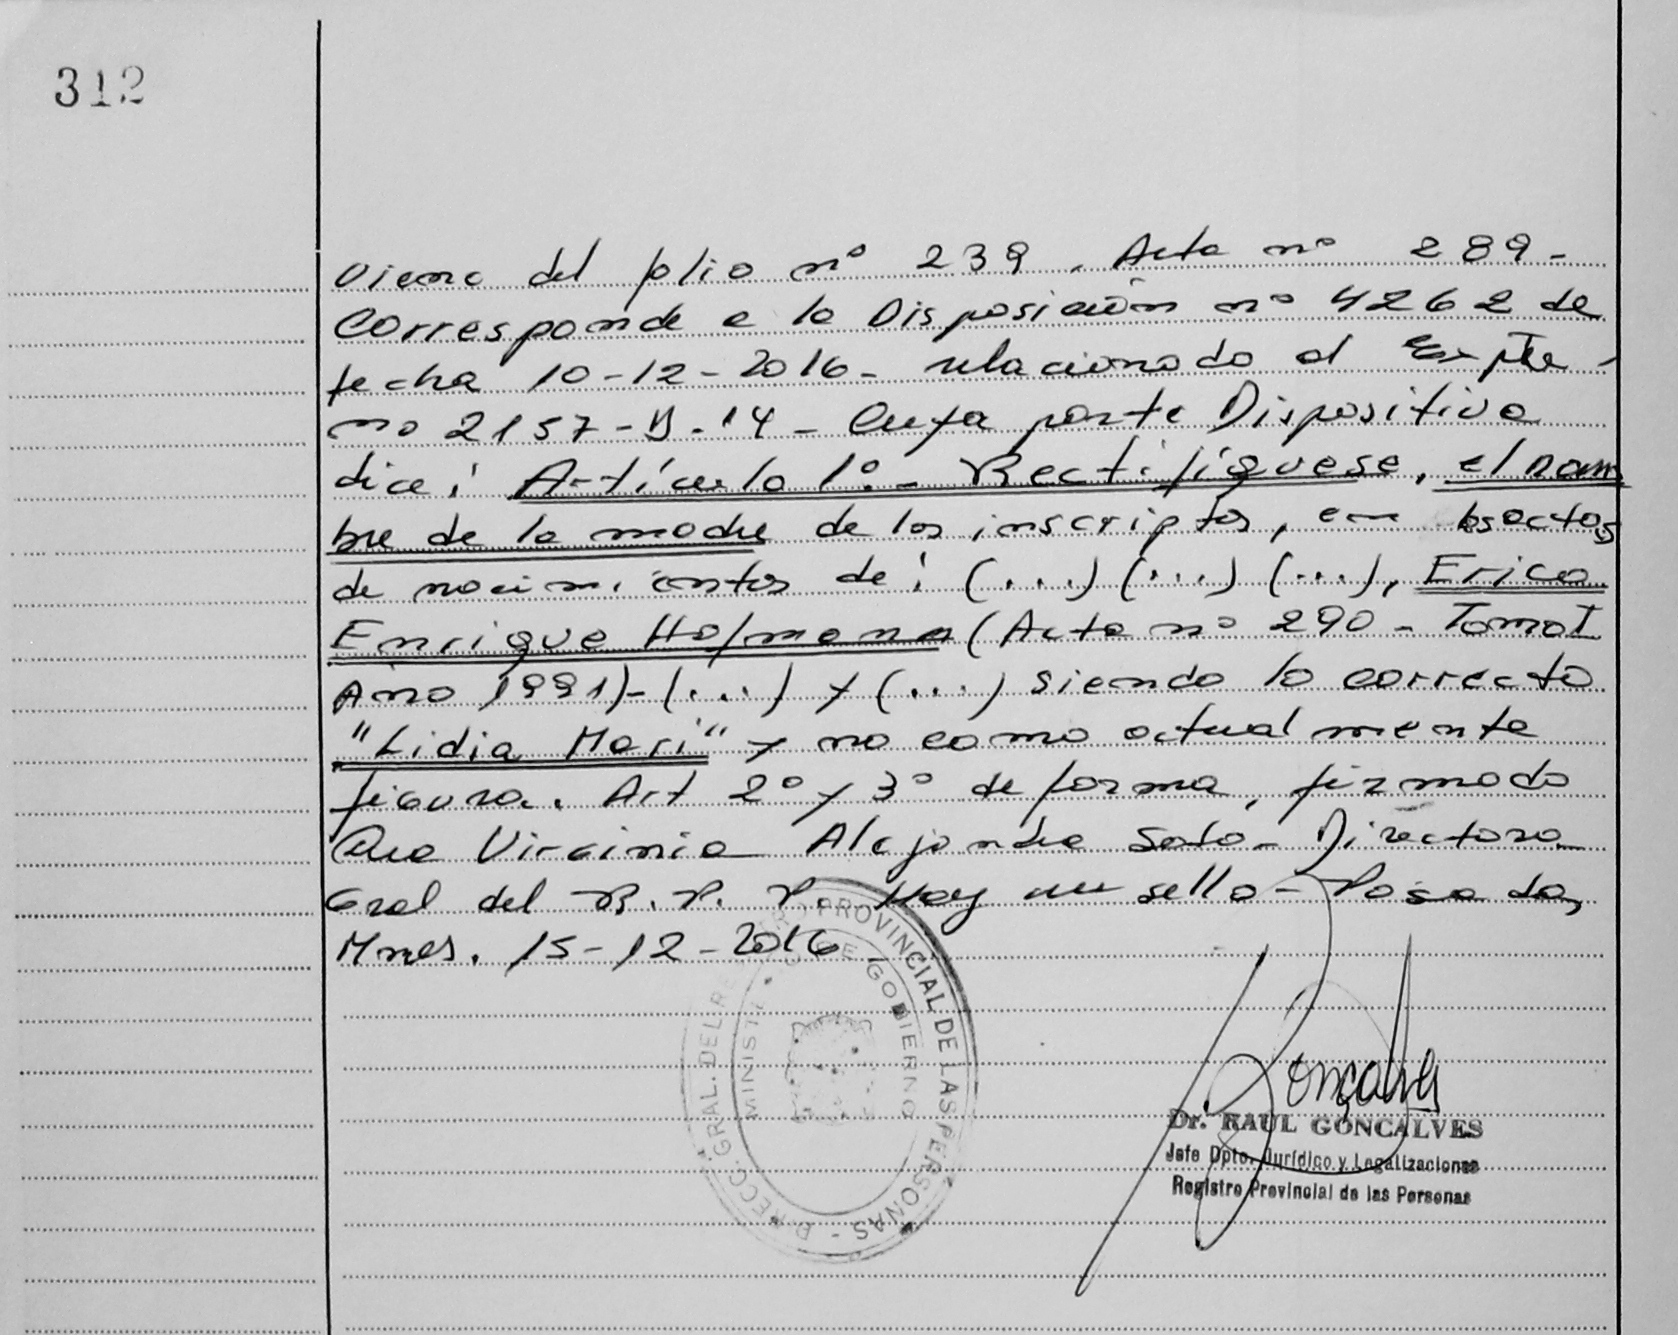 312
Viene del folio nº 239. Acta nº 289-
Corresponde a la Disposición nº 4262 de
fecha 10-12-2016- relacionado al Expte
nº 2157-D-14- Cuya parte Dispositiva
dice: Artículo 1º- Rectifíquese, el nom
bre de la madre de los inscriptos, en las actas
de nacimientos de: (...) (...) (...), Erico
Enrique Hofmann (Acta nº 290- Tomo I
Año 1991)- (...) y (...) siendo lo correcto
"Lidia Mari" y no como actualmente
figura. Art 2º y 3º de forma, firmado
Virginia Alejandra Soto- Directora
Gral del R.P.P. Hay un sello- Posadas,
Mnes. 15-12-2016
DIRECC. GRAL. DEL REGISTRO PROVINCIAL DE LAS PERSONAS -
MINISTERIO DE GOBIERNO
Gonçalves
Dr. RAUL GONCALVES
Jefe Dpto. Jurídico y Legalizaciones
Registro Provincial de las Personas